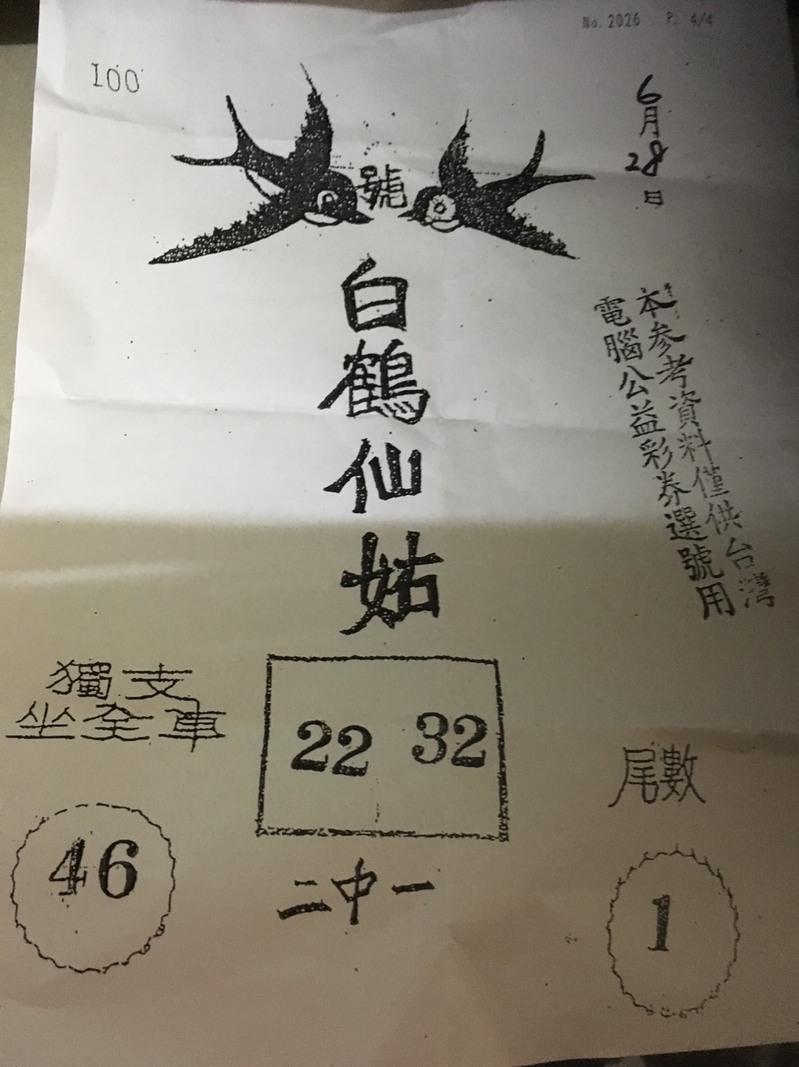 No. 2026 P. 4/4
100
6月28日
號
白鶴仙姑
本参考資料僅供台灣
電腦公益彩券選號用
獨支
坐全車
22 32
尾數
46
二中一
1